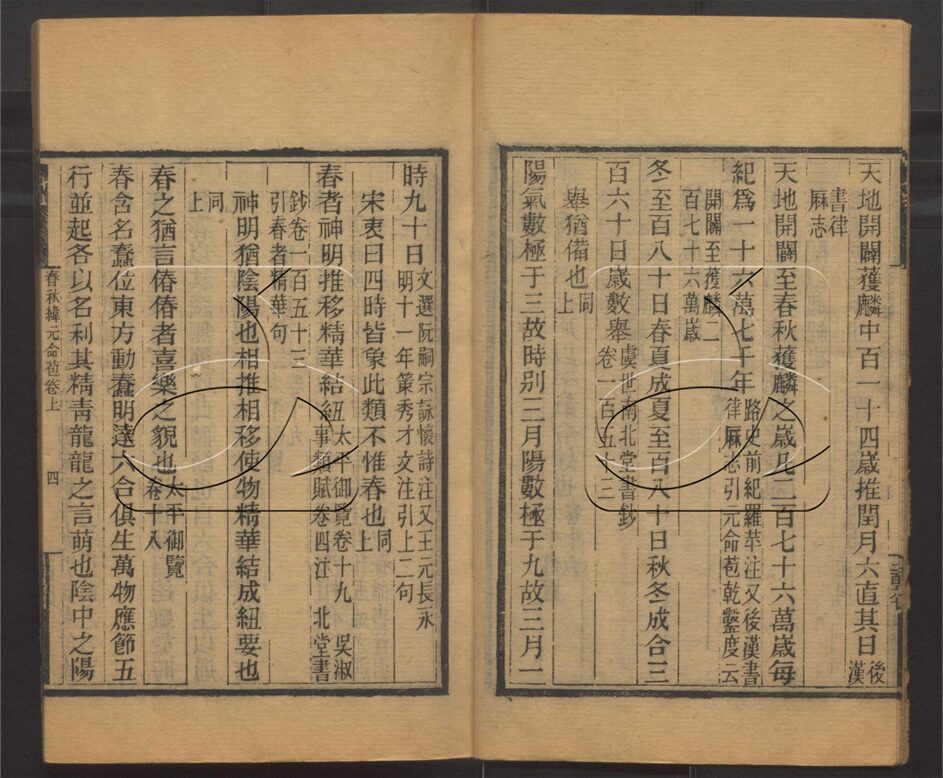 天地開闢獲麟中百一十四歲推閏月六直其日後漢
書律
厤志
天地開闢至春秋獲麟之歲凡二百七十六萬歲每
紀爲一十六萬七千年路史前紀羅苹注又後漢書
律厤志引元命苞乾鑿度云
開闢至獲麟二
百七十六萬歲
冬至百八十日春夏成夏至百八十日秋冬成合三
百六十日歲數舉虞世南北堂書鈔
卷一百五十三
舉猶備也同上
陽氣數極于三故時别三月陽數極于九故三月一
時九十日文選阮嗣宗詠懷詩注又王元長永
明十一年策秀才文注引上二句
宋衷曰四時皆象此類不惟春也同上
春者神明推移精華結紐太平御覽卷十九 吳淑
事類賦卷四注 北堂書
鈔卷一百五十三
引春者精華句
神明猶陰陽也相推相移使物精華結成紐要也
同
上
春之猶言偆偆者喜樂之貌也太平御覽
卷十八
春含名蠢位東方動蠢明達六合俱生萬物應節五
行並起各以名利其精靑龍龍之言萌也陰中之陽
春秋緯元命苞卷上
四